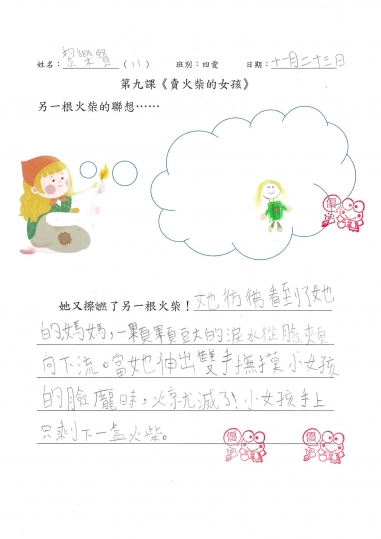 姓名：黎樂賢（11） 班別：四愛 日期：十一月二十三日
第九課《賣火柴的女孩》
另一根火柴的聯想……
優
她又擦燃了另一根火柴！她彷彿看到了她
的媽媽，一顆顆豆大的淚水從臉頰
向下流。當她伸出雙手撫摸小女孩
的臉龐時，火就滅了！小女孩手上
只剩下一盒火柴。
優
優